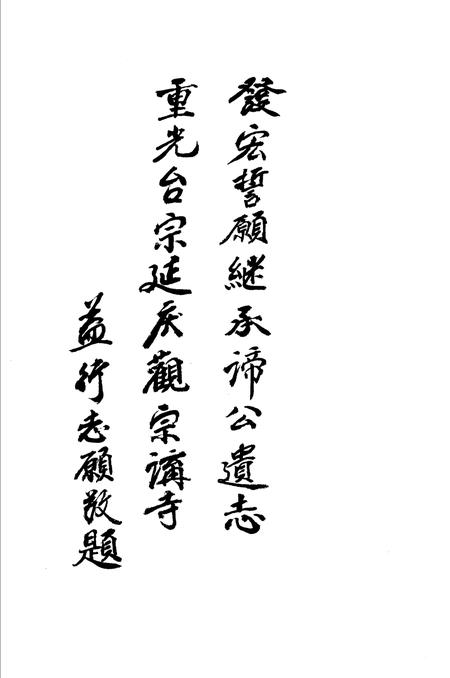 發宏誓願継承諦公遺志
重光台宗延庆觀宗講寺
益行志願敬題